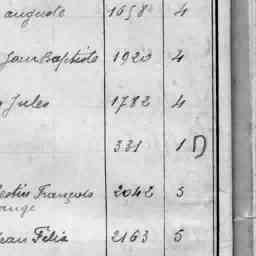 auguste 1658 4
Jean Baptiste 1920 4
Jules 1782 4
331 1 D
François 2042 5
ange
Jean Félix 2163 5